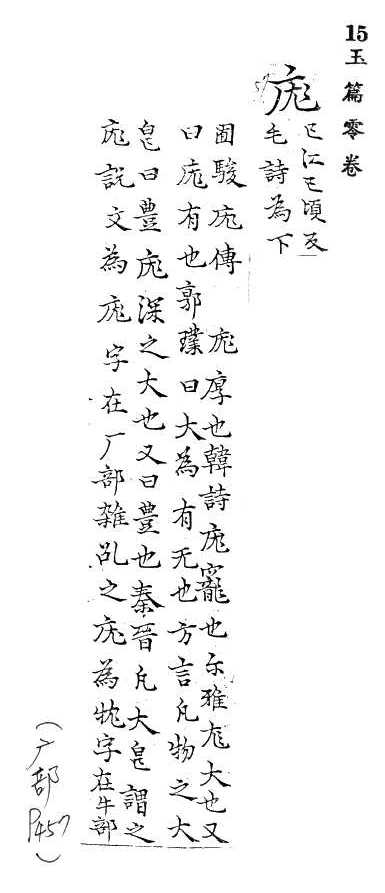 15玉篇零卷
57
庬
亡江亡項反
毛詩為下
国駿庬傳 庬厚也韓詩庬寵也尓雅庬大也又
曰庬有也郭璞曰大為有无也方言凡物之大
皃曰豊庬深之大也又曰豊也秦晉凡大皃謂之
庬說文為庬字在厂部雑乱之庬為牻字在牛部
(广部P457)